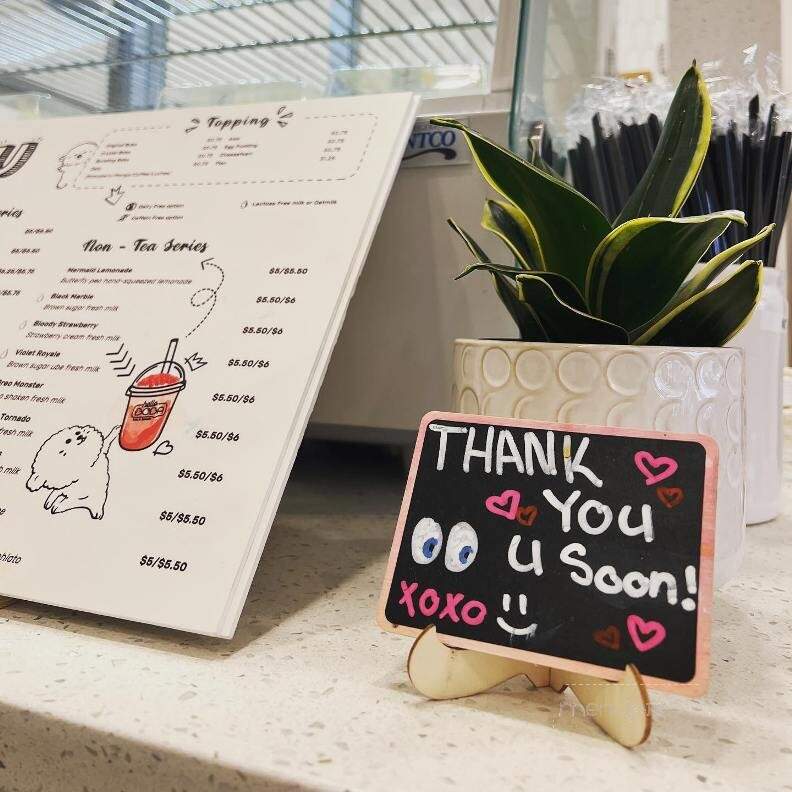 Topping
$0.75
$0.75 Egg Pudding $0.75
Dairy Free option
Caffein Free option
Lactose Free milk or Oatmilk
Non - Tea Series
Mermaid Lemonade $5/$5.50
Butterfly pea hand-squeezed lemonade
Black Marble $5.50/$6
Brown sugar fresh milk
Bloody Strawberry $5.50/$6
Strawberry cream fresh milk
Violet Royale $5.50/$6
Brown sugar ube fresh milk
reo Monster $5.50/$6
o shaken fresh milk
Tornado $5.50/$6
fresh milk
$5.50/$6
h milk
$5/$5.50
$5/$5.50
hiato
hello
BOBA
NTCO
THANK
YOU
U Soon!
XOXO